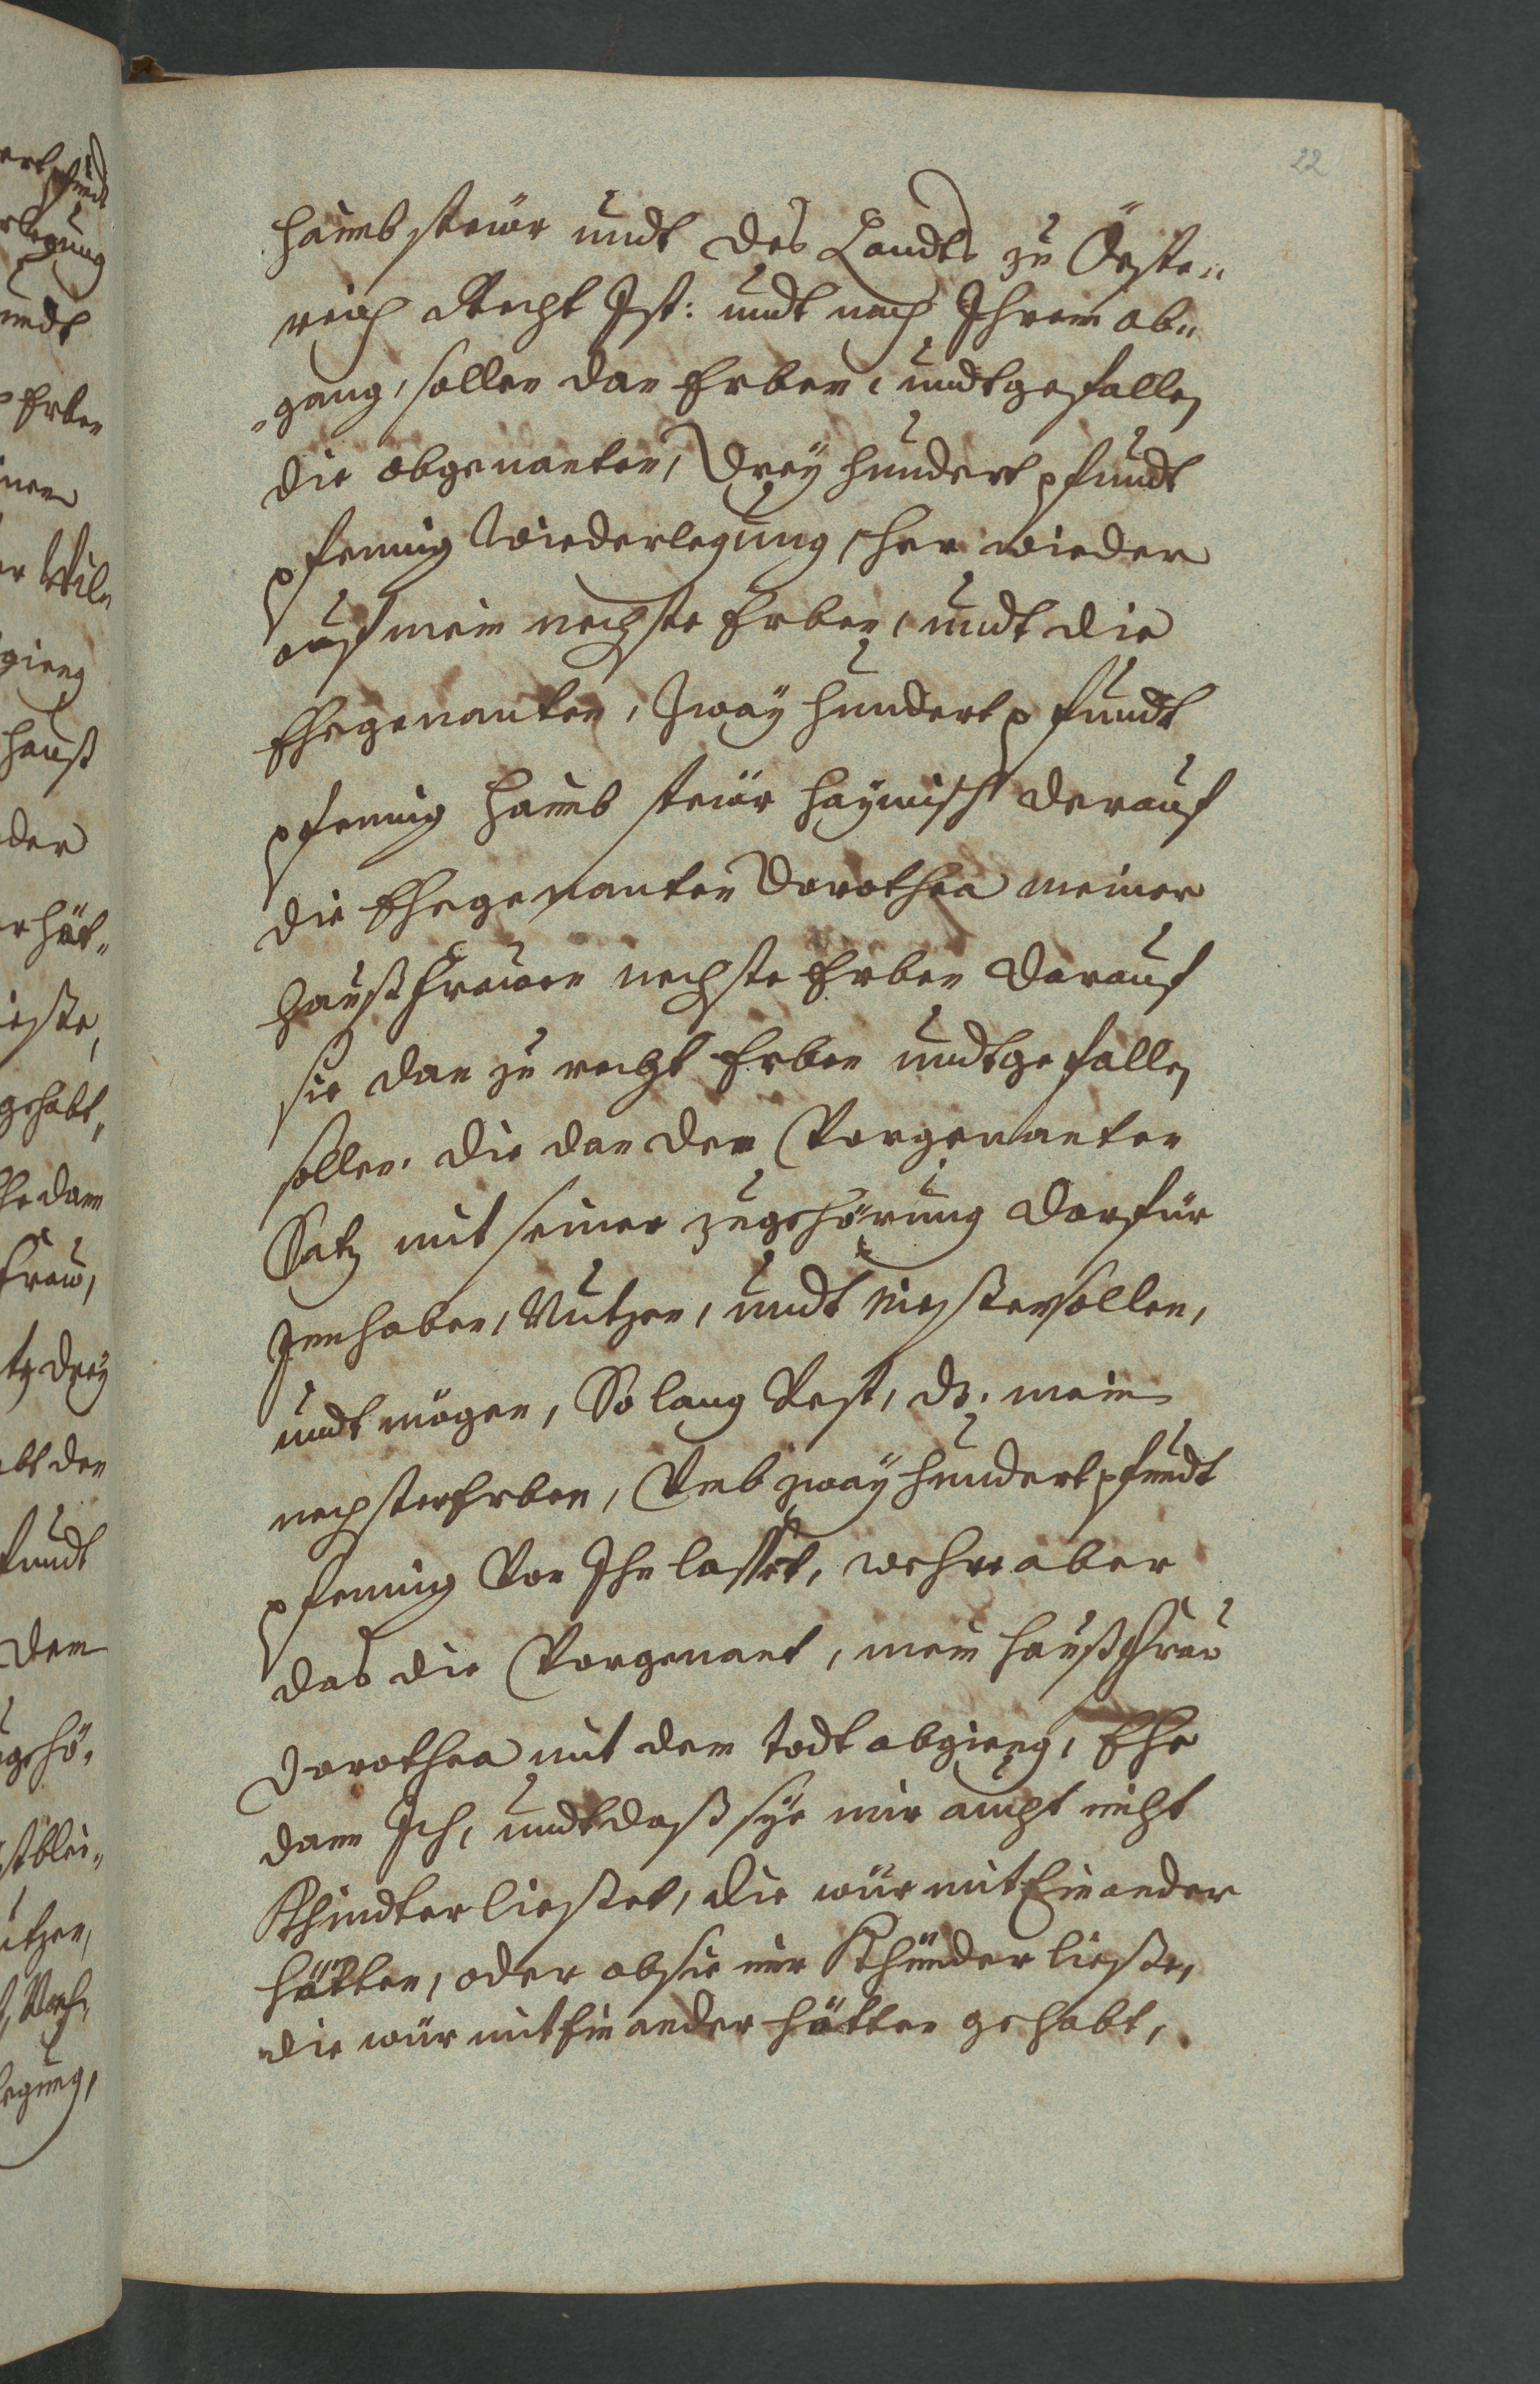 22
haimb steür undt des Landts zu Össter„
reich Recht Ist: undt nach Ihrem ab„
„gang, sollen dan Erben, undtgefallen
die obgenanten, Drey hundert pfundt
pfening Wiederlegung, her wieder
auf mein nechste Erben, undt die
Ehegenanten, Zway hundert pfundt
pfening haimb steür haymisch derauf
die Ehegenanten Dorothea meiner
haußfrauen nechste Erben darauf
sie dan zu recht Erben undtgefallen
sollen. die dan den Vorgenanten
Satz mit seiner zugehörung darfür
Innhaben, Nutzen, undt niessen sollen,
undt mögen, So lang Vest, ds. mein
nechsten Erben, Vmb zway hundert pfundt
pfening Von Ihn lasset, wehre aber
das die Vorgenant, mein haußfrau
Dorothea mit dem todt abgieng, Ehe
dann Ich, undt daß sye mir aucht nicht
Khindter liesset, die wür mit Einander
hätten, oder ob sie mir Khinder liesse,
die wür mit Einander hätten gehabt,